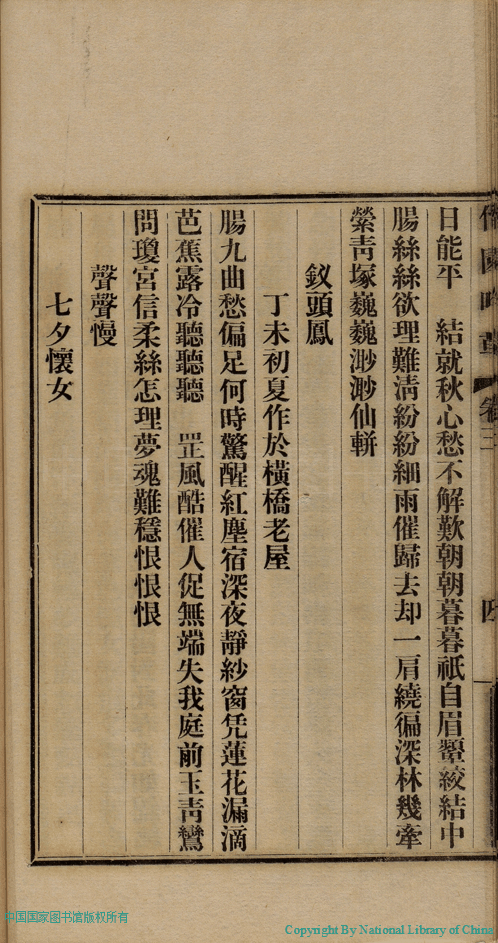 日能平　結就秋心愁不解歎朝朝暮暮祇自眉顰絞結中
腸絲絲欲理難淸紛紛細雨催歸去却一肩繞徧深林幾牽
縈靑塚巍巍渺渺仙軿
釵頭鳳
丁未初夏作於橫橋老屋
腸九曲愁偏足何時驚醒紅塵宿深夜靜紗窗凭蓮花漏滴
芭蕉露冷聽聽聽　罡風酷催人促無端失我庭前玉靑鸞
問瓊宮信柔絲怎理夢魂難穩恨恨恨
聲聲慢
七夕懷女
中国国家图书馆版权所有
Copyright By National Library of China